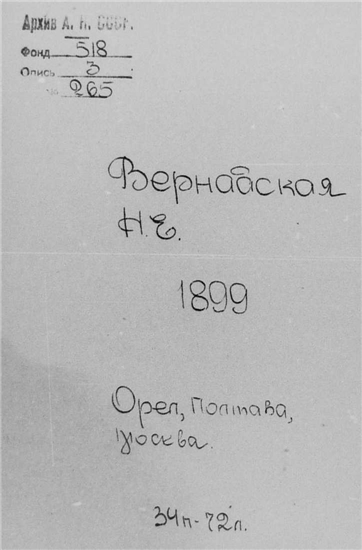 Архив А. Н. СССР.
Фонд 518
Опись 3
№ 265
Вернадская
Н.Е.
1899
Орел, Полтава,
Москва.
34п-72л.